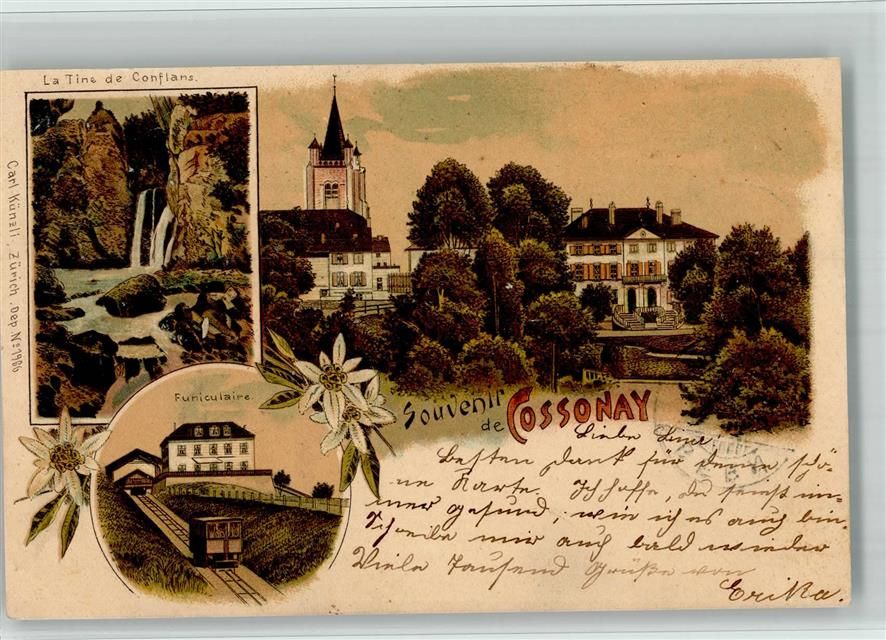 La Tine de Conflans.
Carl Künzli, Zürich. Dep. No. 1906
Funiculaire.
Souvenir
de COSSONAY
Liebe
Besten Dank für deine schö-
ne Karte. Ich hoffe, du seiest im-
mer gesund, wie ich es auch bin.
Schreibe mir auch bald wieder
Viele Tausend Grüße von
Erika.